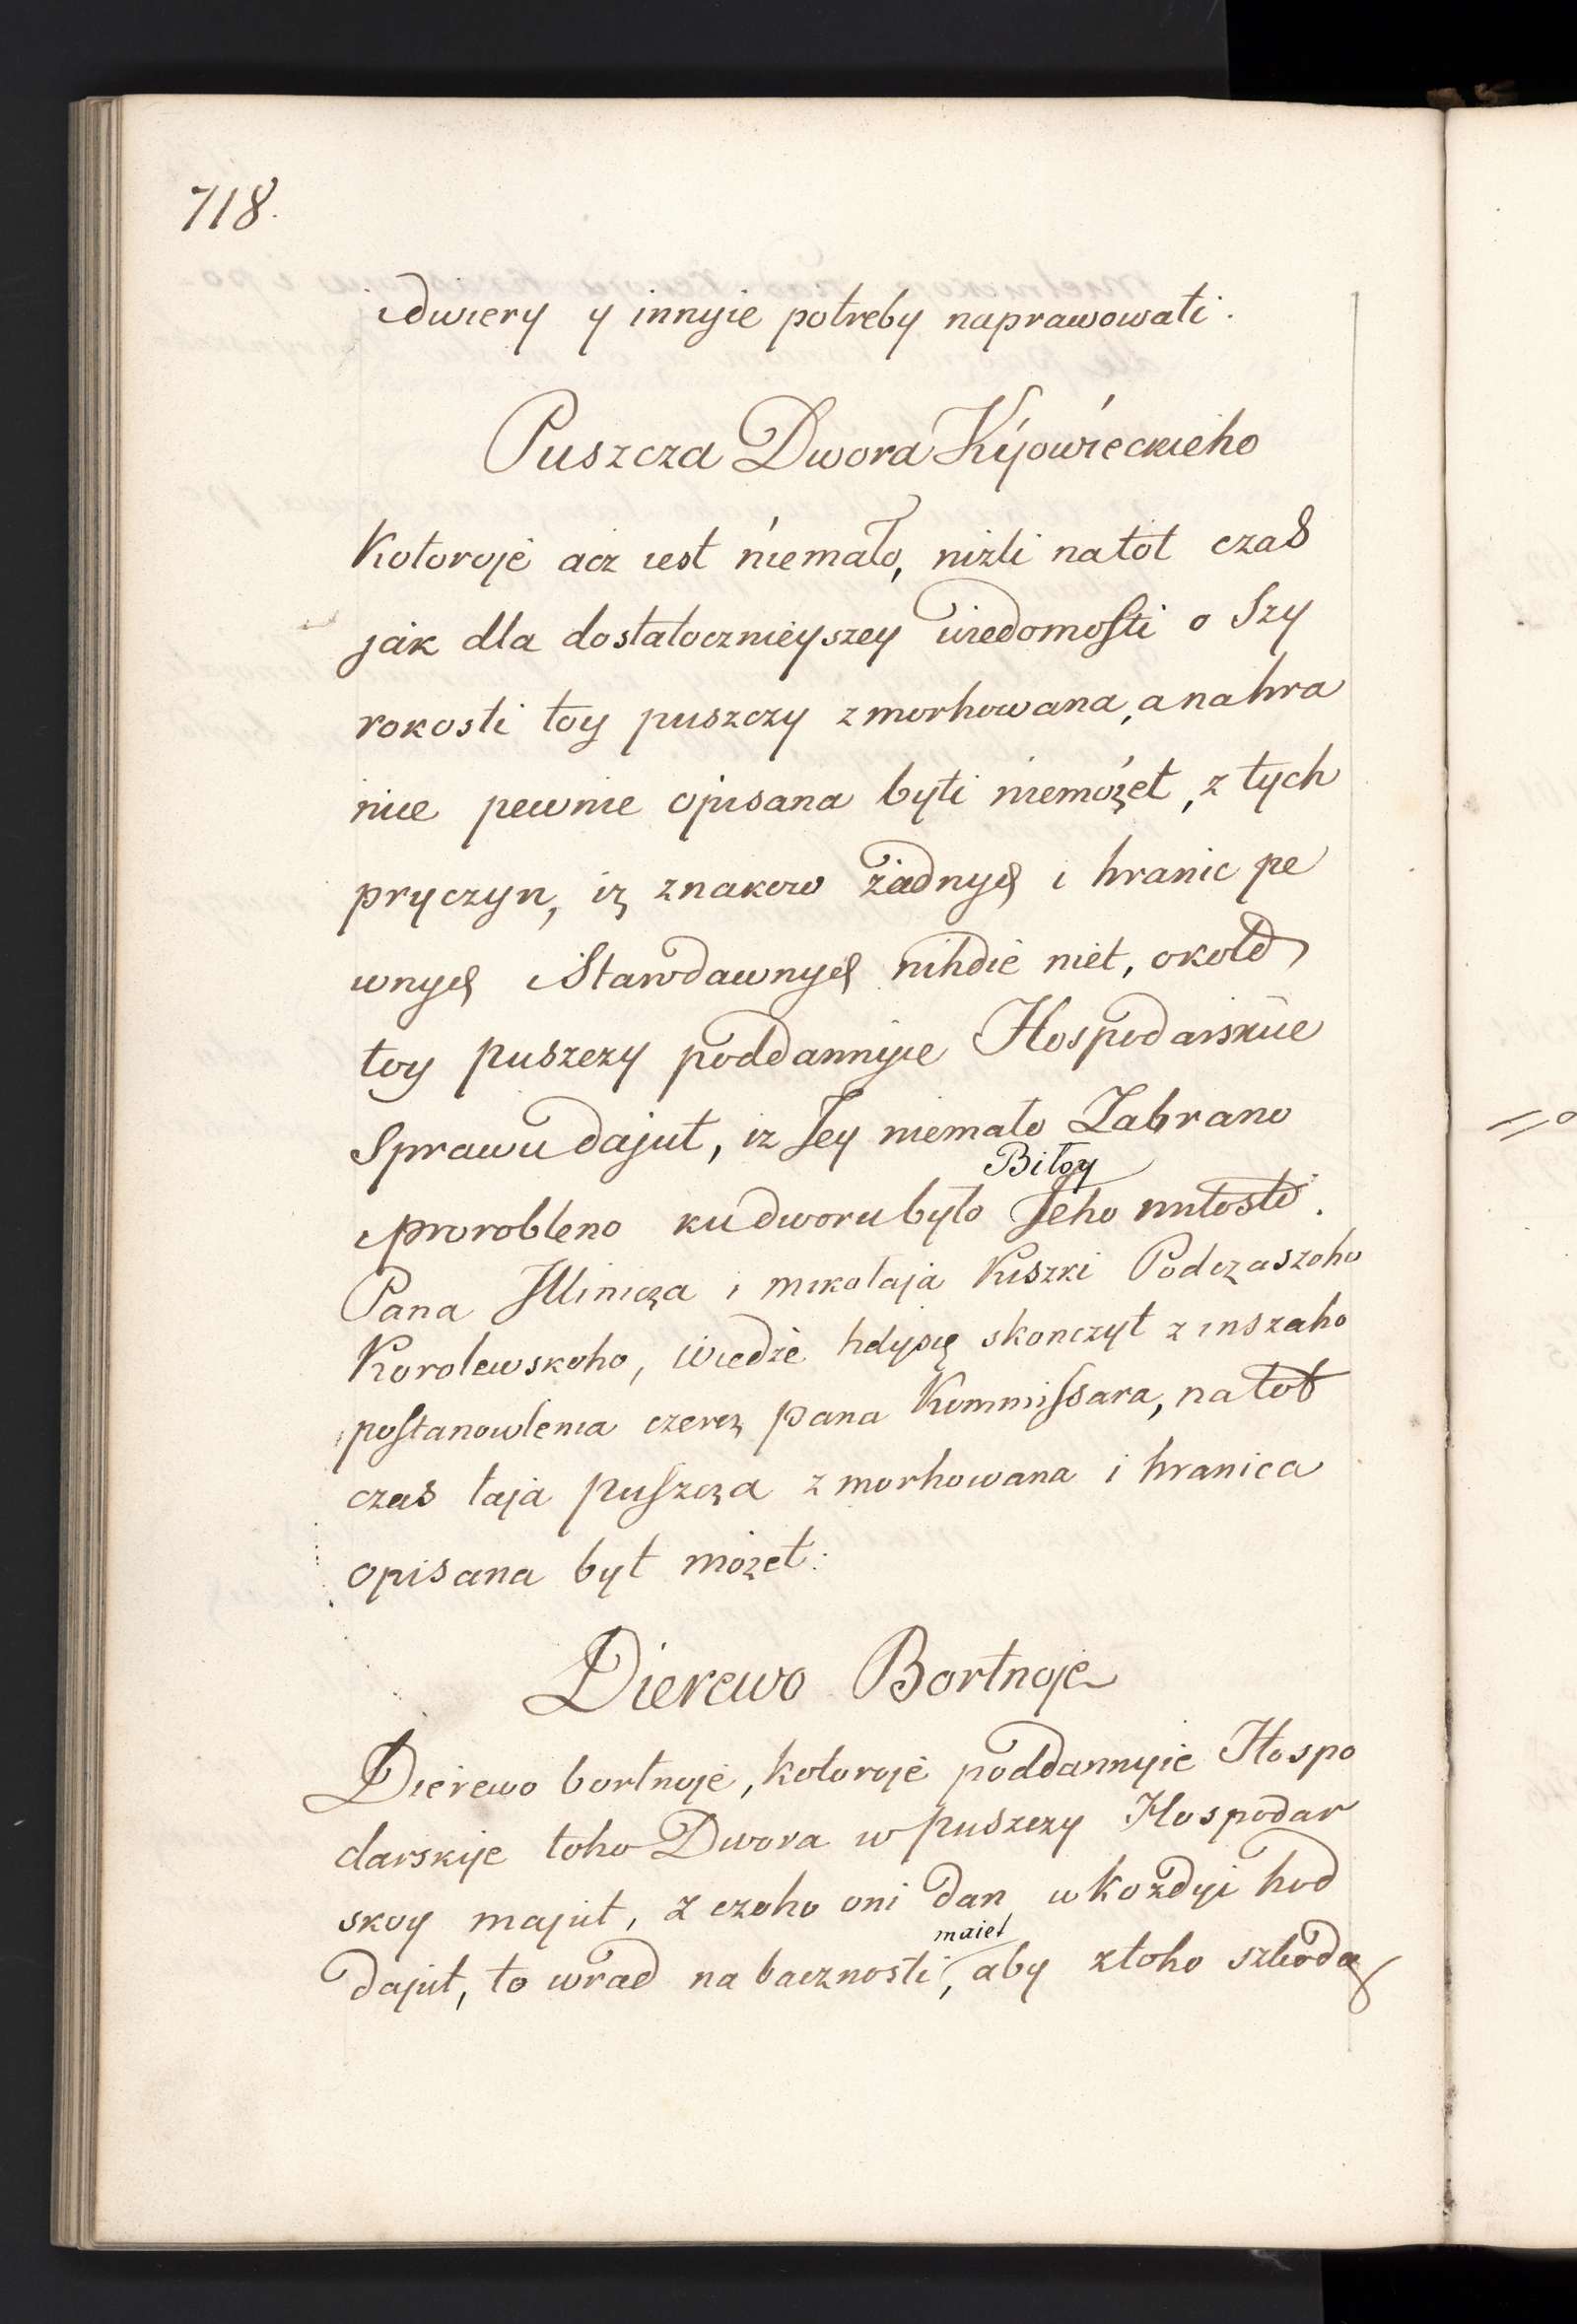 718.
dwiery y innyie potreby naprawowati.
Puszcza Dwora Kijowieckieho
Kotoroje acz iest niemało, niżli natot czas
jak dla dostatoczniejszey wiedomosti o Szy
rokosti toy puszczy zmorhowana, a nahra
nice pewnie opisana byti niemożet, z tych
pryczyn, iż znakow żadnych i hranic pe
wnych Starodawnych nihdie niet, około
toy puszczy poddannyie Hospodarskiie
Sprawu dajut, iz Jey niemało Zabrano
Biłoy
prorobleno ku dworu było Jeho miłosti.
Pana Illinicza i mikołaja Kiszki Podczaszoho
Korolewskoho, wiedże hdysię skonczyt z inszaho
postanowlenia czerez pana Kommissara, na tot
czas taja puszcza zmorhowana i hranica
opisana byt możet:
Dierewo Bortnoje
Dierewo bortnoje, kotoroje poddannyie Hospo
darskije toho Dwora w puszczy Hospodar
skoy majut, z czoho oni dan w kożdyi hod
maiet
dajut, to wrad na bacznosti, aby ztoho szkoda